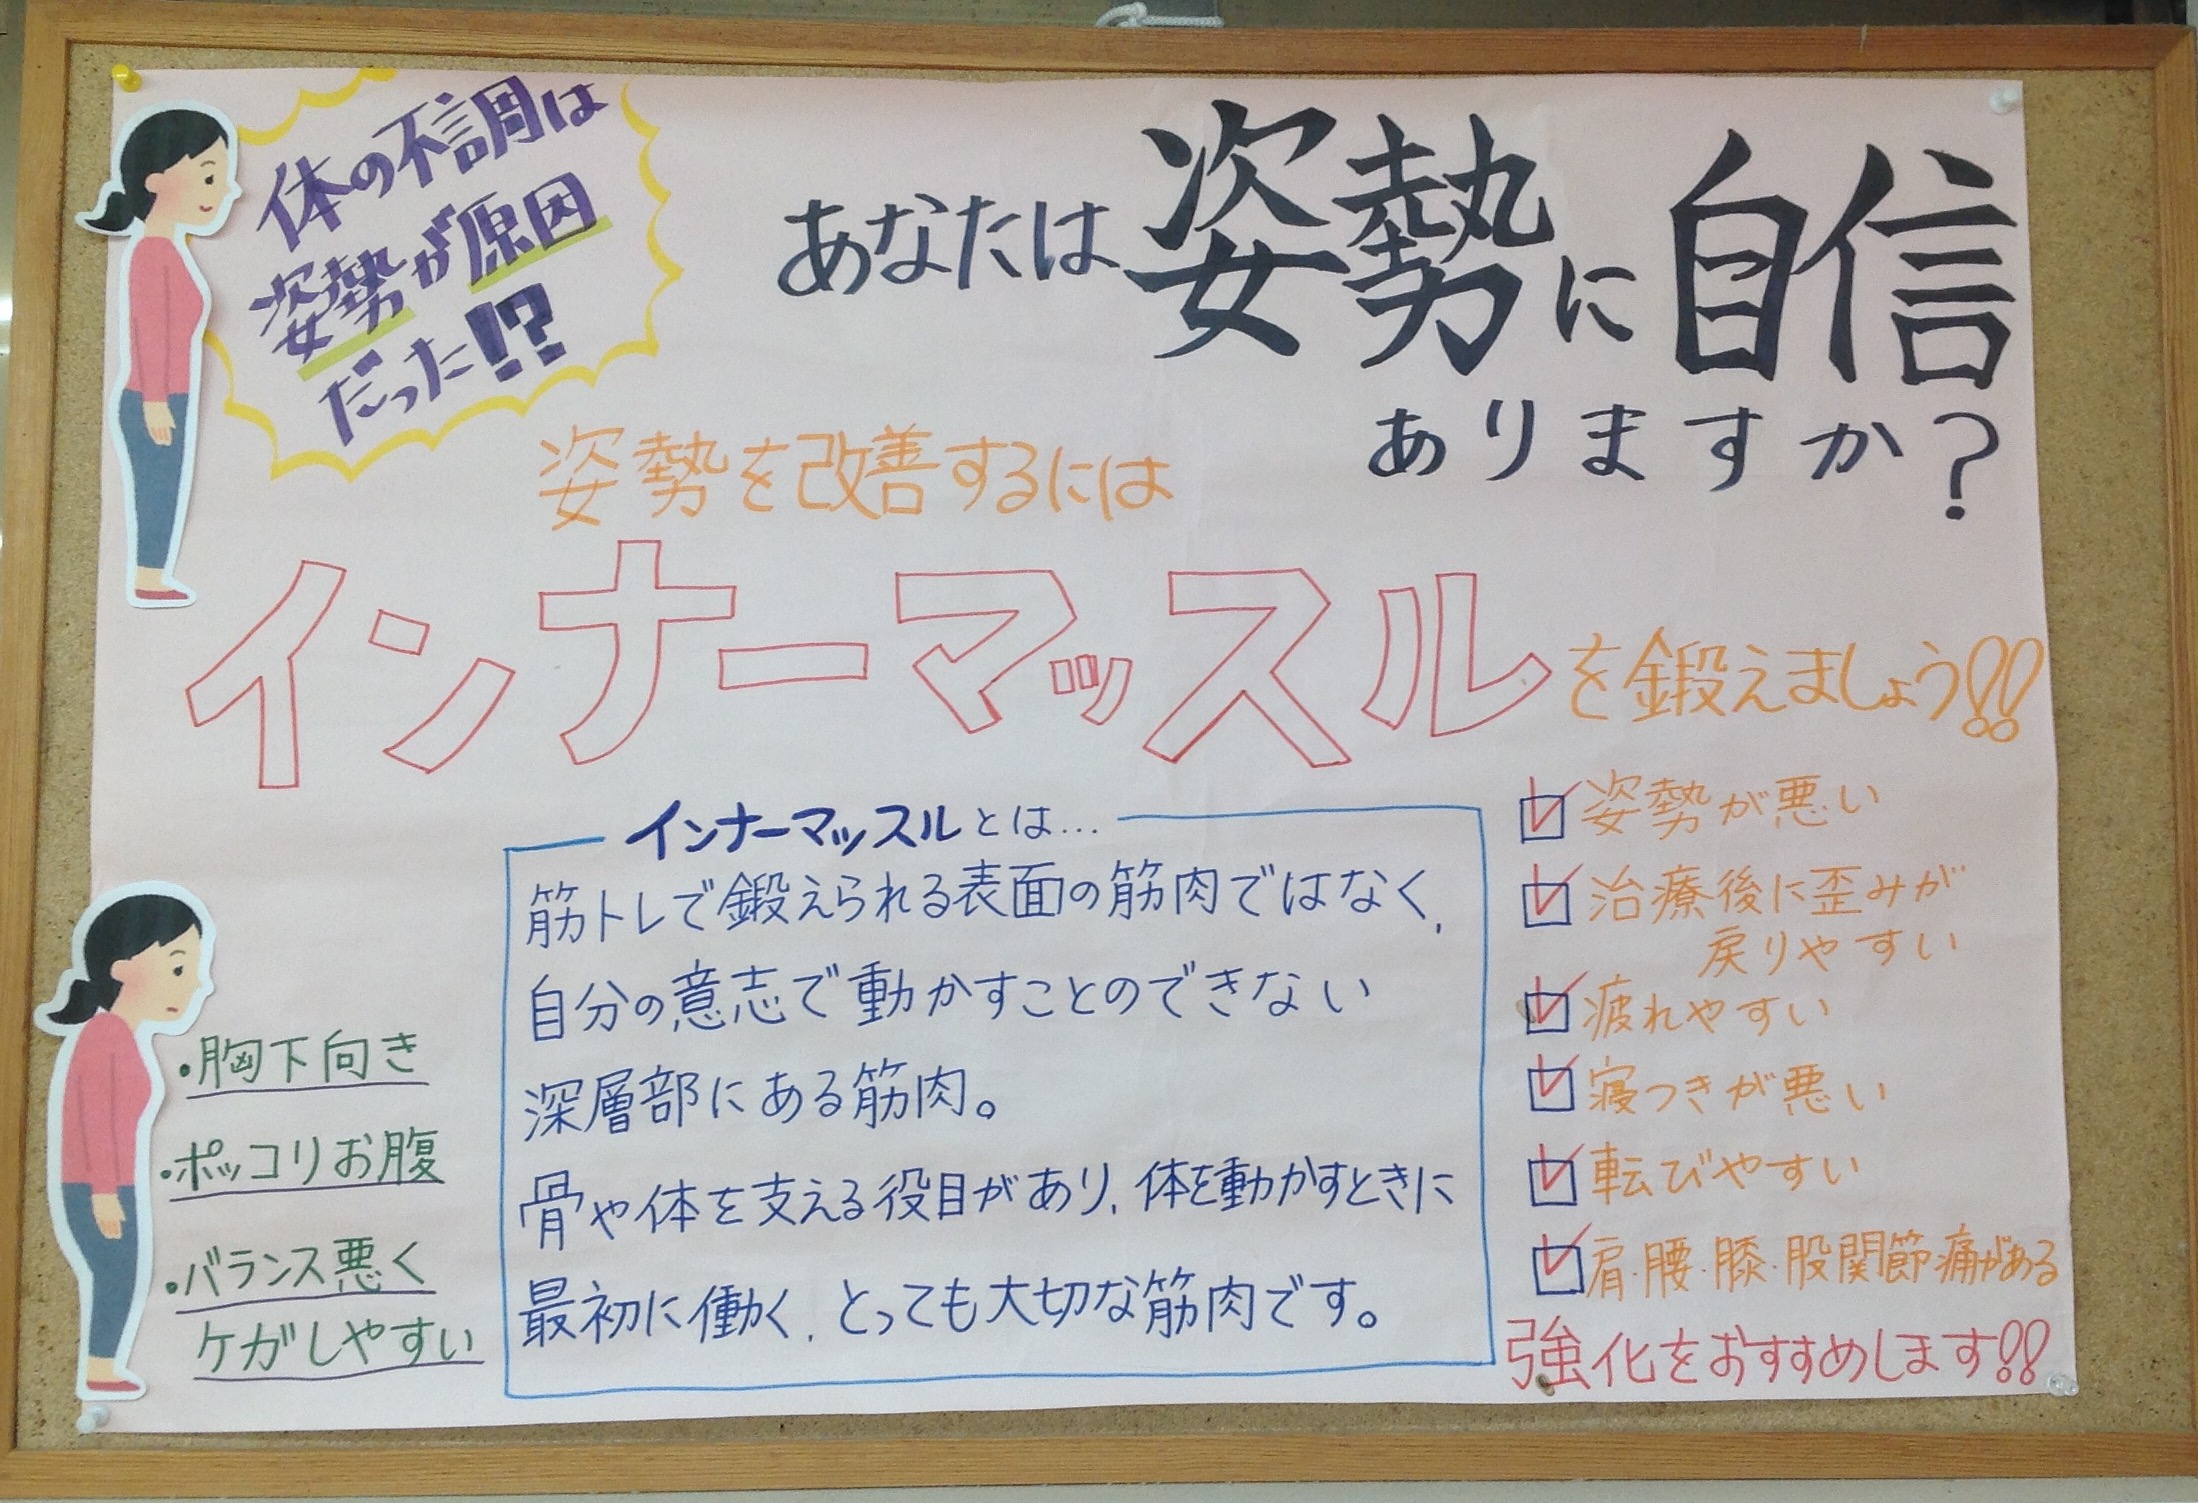 体の不調は
姿勢が原因
だった!?
あなたは姿勢に自信
ありますか?
姿勢を改善するには
インナーマッスルを鍛えましょう!!
インナーマッスルとは…
筋トレで鍛えられる表面の筋肉ではなく、
自分の意志で動かすことのできない
深層部にある筋肉。
骨や体を支える役目があり、体を動かすときに
最初に働く、とっても大切な筋肉です。
・胸下向き
・ポッコリお腹
・バランス悪く
ケガしやすい
☑姿勢が悪い
☑治療後に歪みが
戻りやすい
☑疲れやすい
☑寝つきが悪い
☑転びやすい
☑肩・腰・膝・股関節痛がある
強化をおすすめします!!